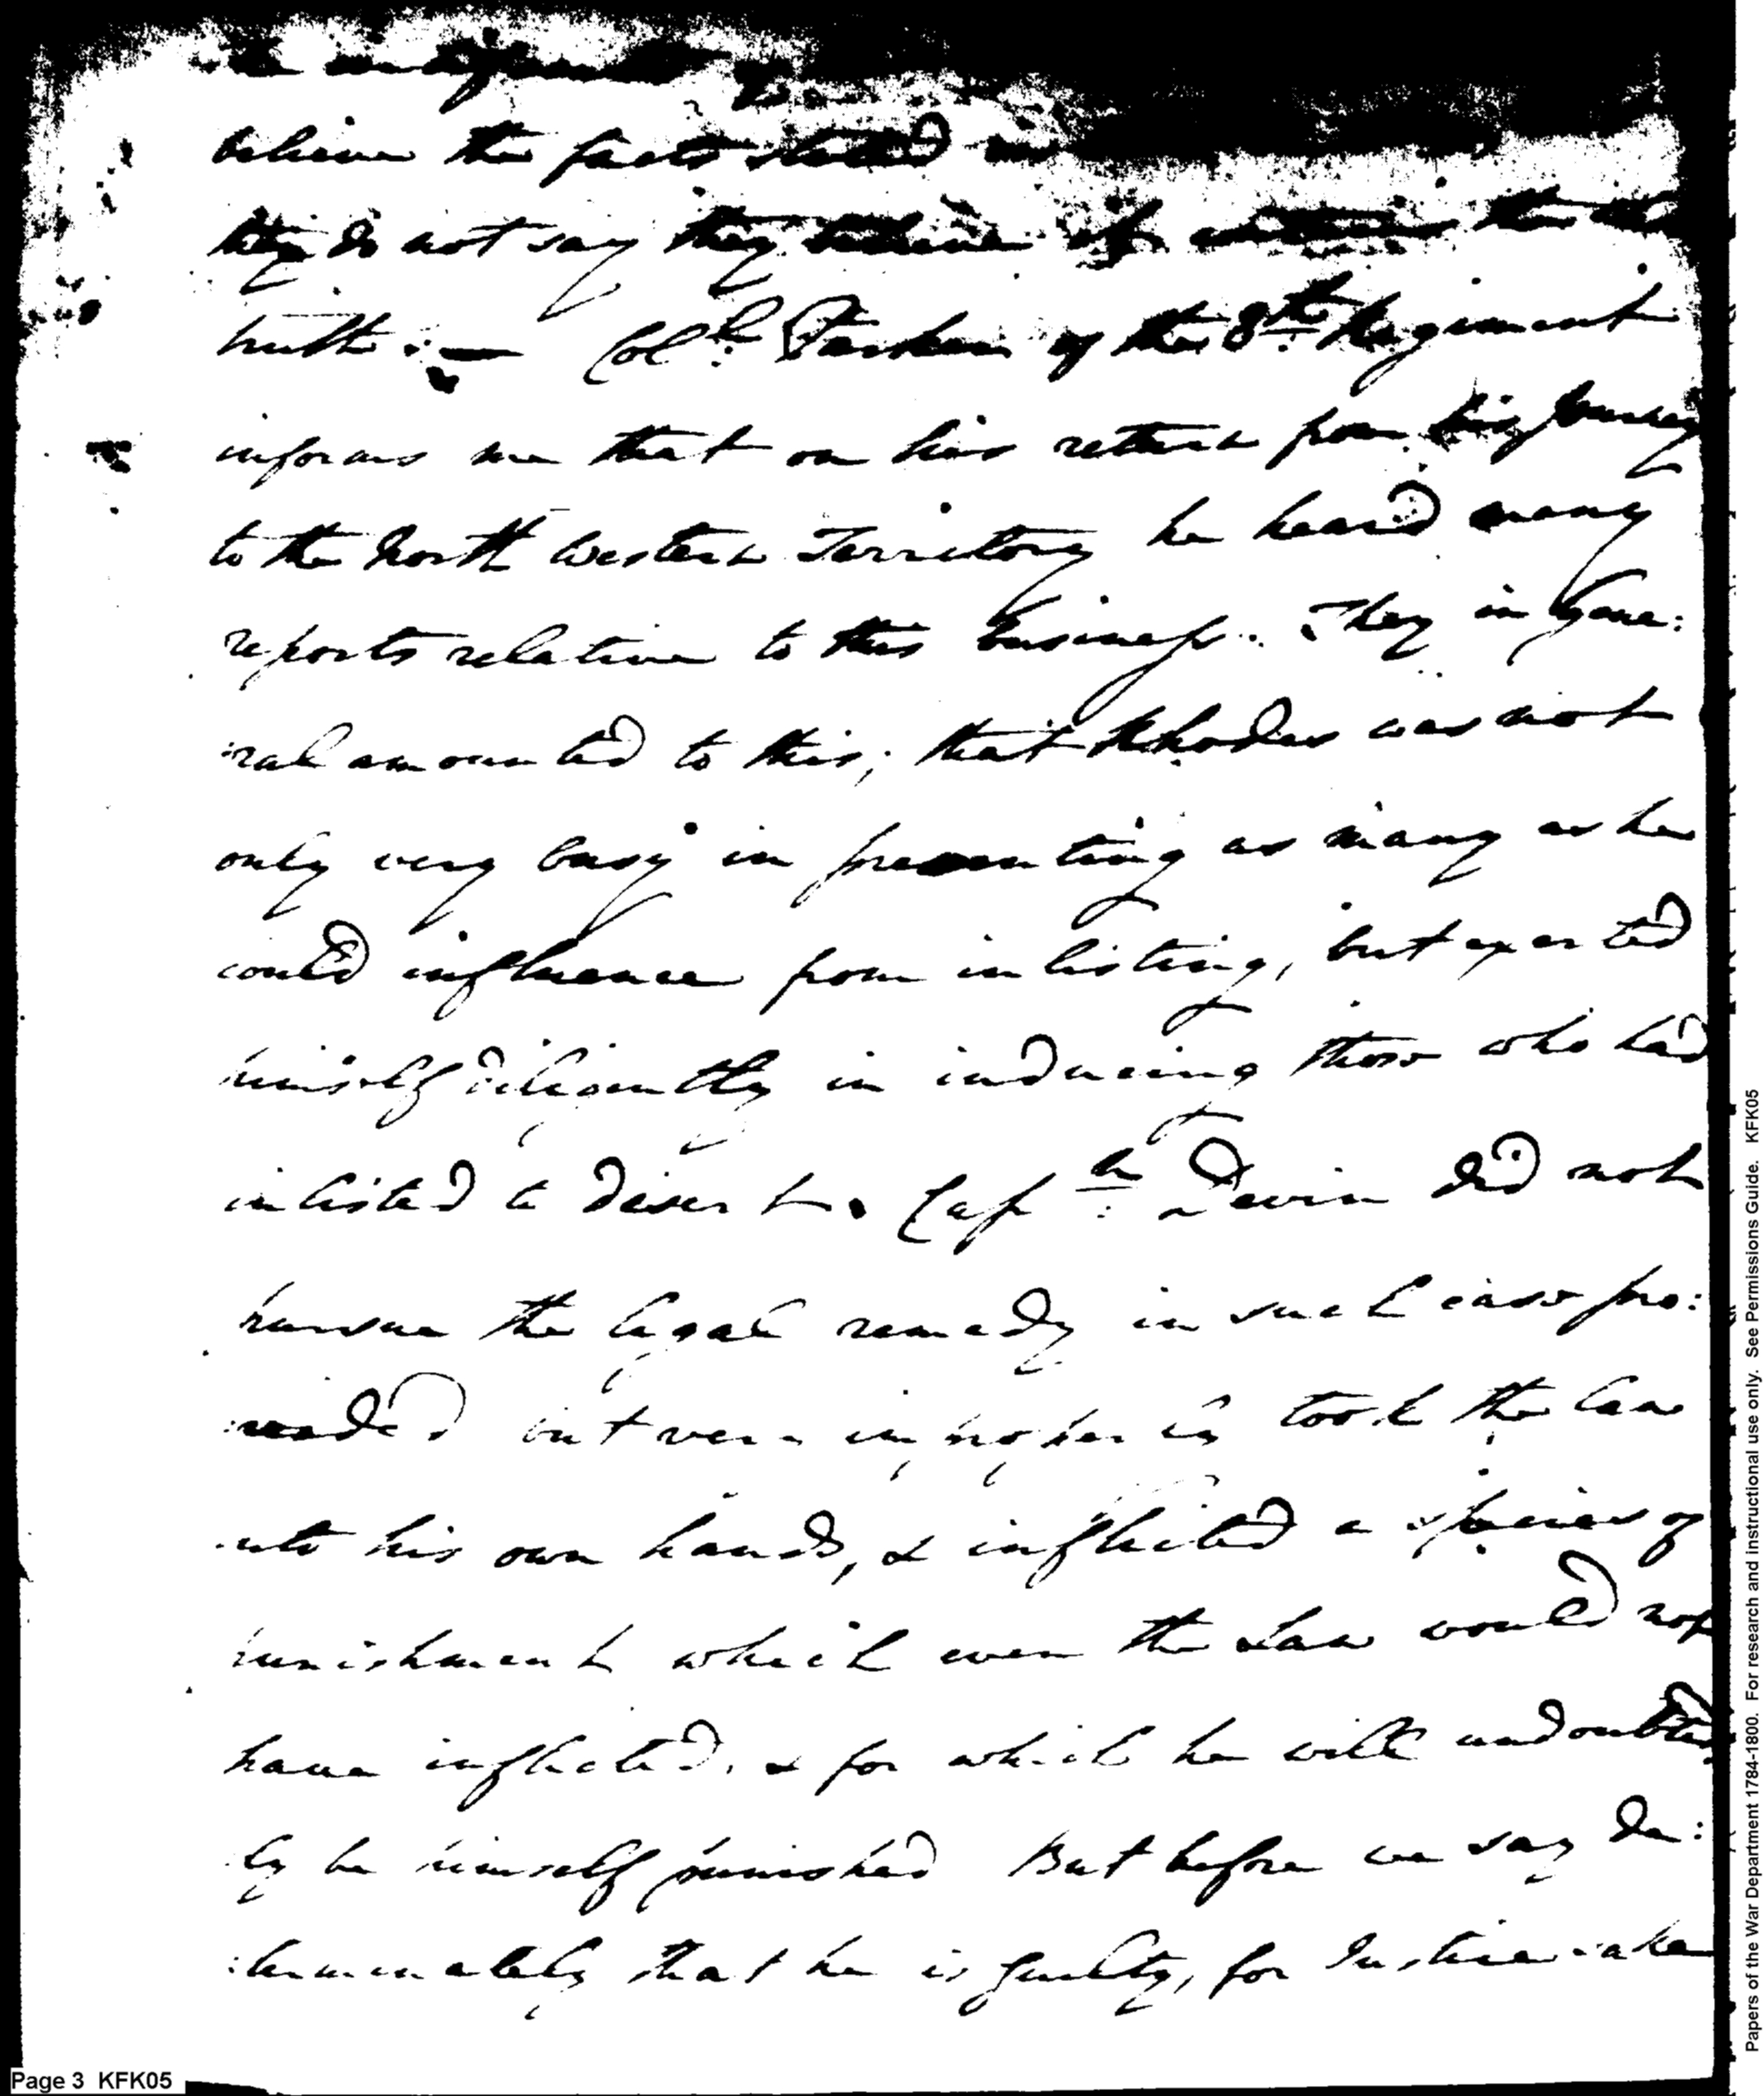 believe the facts stated in
they do not say they believe of the
truth :— Col.l Parker of the 8th Regiment
informs me that on his return from his journey
to the North Western Territory he heard many
reports relative to this business. They in gene:
:ral amounted to this; that Rhodes was not
only very busy in preventing as many as he
could influence from inlisting, but exerted
himself diligently in inducing those who had
inlisted to desert. Capn Devin did not
pursue the legal remedy in such case pro:
:vided but very improperly took the Law
into his own hands, & inflicted a species of
punishment which even the Law would not
have inflicted, & for which he will undoubted
ly be himself punished But before we say de:
:terminately that he is guilty, for Justice sake
Page 3 KFK05
Papers of the War Department 1784-1800. For research and instructional use only. See Permissions Guide. KFK05